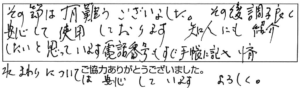 その節は有難うございました。その後調子良く
安心して使用しております 知人にも紹介
したいと思っています電話番号もすぐ手帳に記入 情
水まわりについて ご協力ありがとうございました。
は安心しています よろしく。